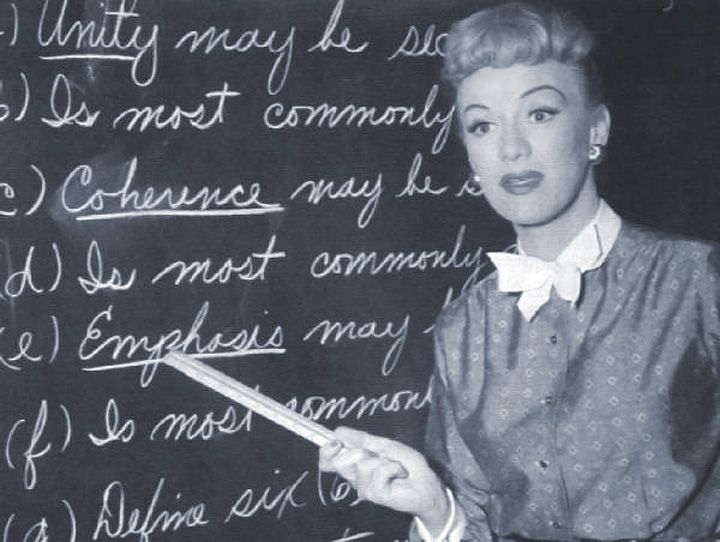 ) Unity may be sec
b) Is most commonly
c) Coherence may be s
(d) Is most commonly
(e) Emphasis may
(f) Is most common
(g) Define six (6